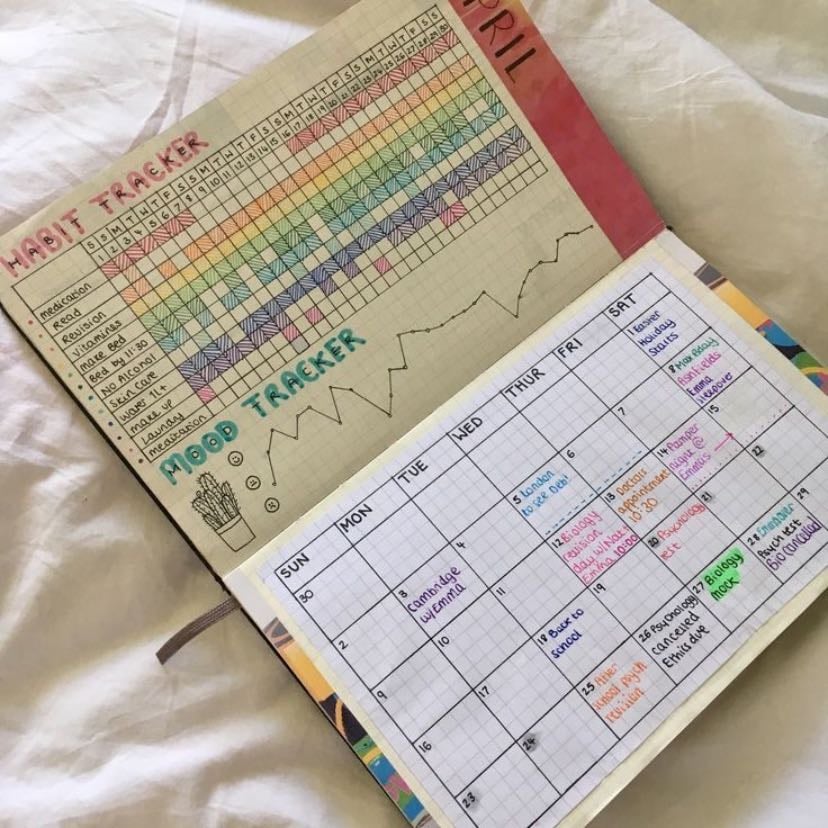 APRIL
HABIT TRACKER
S S M T W T F S S M T W T F S S M T W T F S S M T W T F S S
1 2 3 4 5 6 7 8 9 10 11 12 13 14 15 16 17 18 19 20 21 22 23 24 25 26 27 28 29 30
medication
Read
Revision
Vitamins
make Bed
Bed by 11:30
No Alcohol
Skin care
Water 1L+
make up
Laundry
meditation
MOOD TRACKER
SUN MON TUE WED THUR FRI SAT
30
1 Easter
Holiday
Starts
2
3 Cambridge
w/Emma
4
5 London
to see Debi
6
7
8 Max Bday
Ashfields
Emma
sleepover
9
10
11
12 Biology
revision
day w/Nat+
Emma 10:00
13 Doctors
appointment
10:30
14 Pamper
night @
Emma's
15
16
17
18 Back to
school
19
20 Psychology
test
21
22
23
24
25 After
school psych
revision
26 Psychology
cancelled
Ethics due
27 Biology
mock
28
Psych test
Bio (cancelled)
29